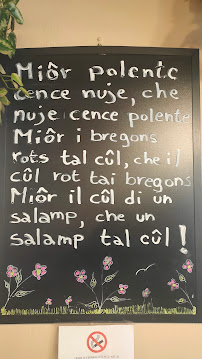 Miôr polente
cence nuje, che
nuje cence polente
Miôr i bregons
rots tal cûl, che il
cûl rot tai bregons
Miôr il cûl di un
salamp, che un
salamp tal cûl!